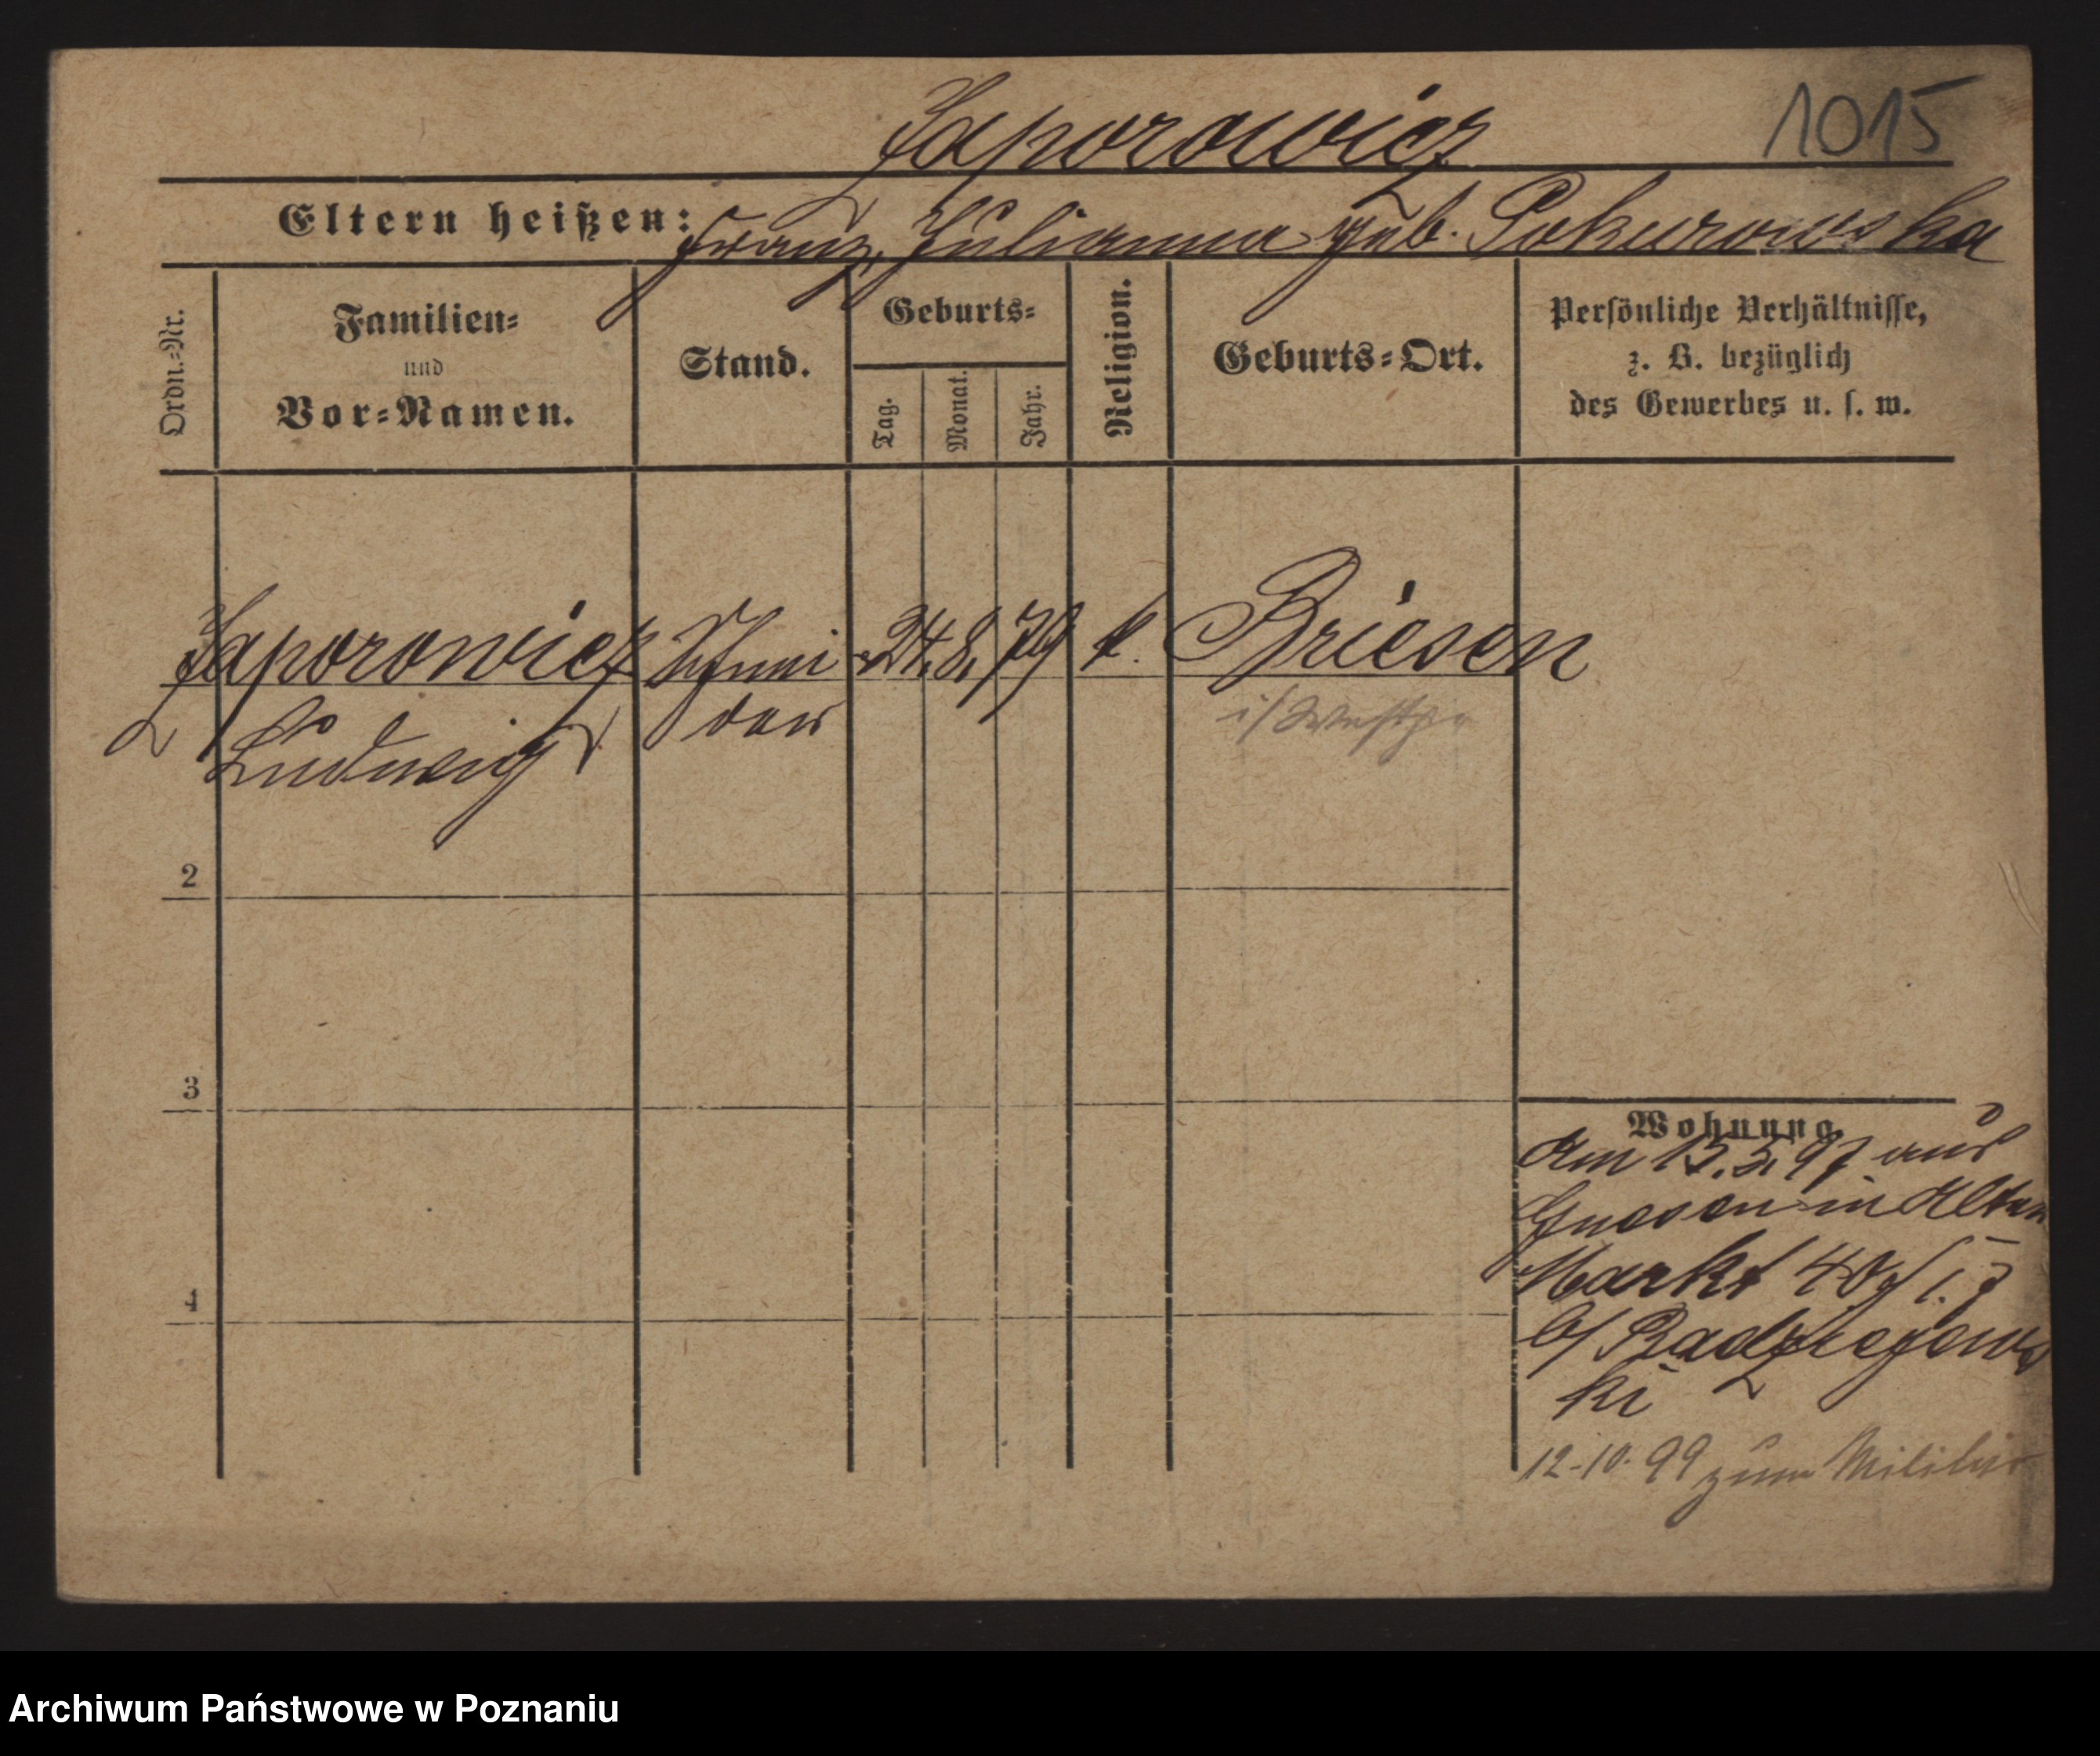 Zaporowicz
1015
Eltern heißen: Franz, Julianna geb. Pokurowska
Ordn.=Nr.
Familien=
und
Vor=Namen.
Stand.
Geburts=
Tag.
Monat.
Jahr.
Religion.
Geburts=Ort.
Persönliche Verhältnisse,
z. B. bezüglich
des Gewerbes u. s. w.
Zaporowicz Schnei 24. 8. 79 k. Briesen
Ludwig der i/Westpr
2
3
4
Wohnung
Am 15. 3. 97 aus
Gnesen in Alten
Markt 40
b/
ki
12-10-99 zum Militär
Archiwum Państwowe w Poznaniu